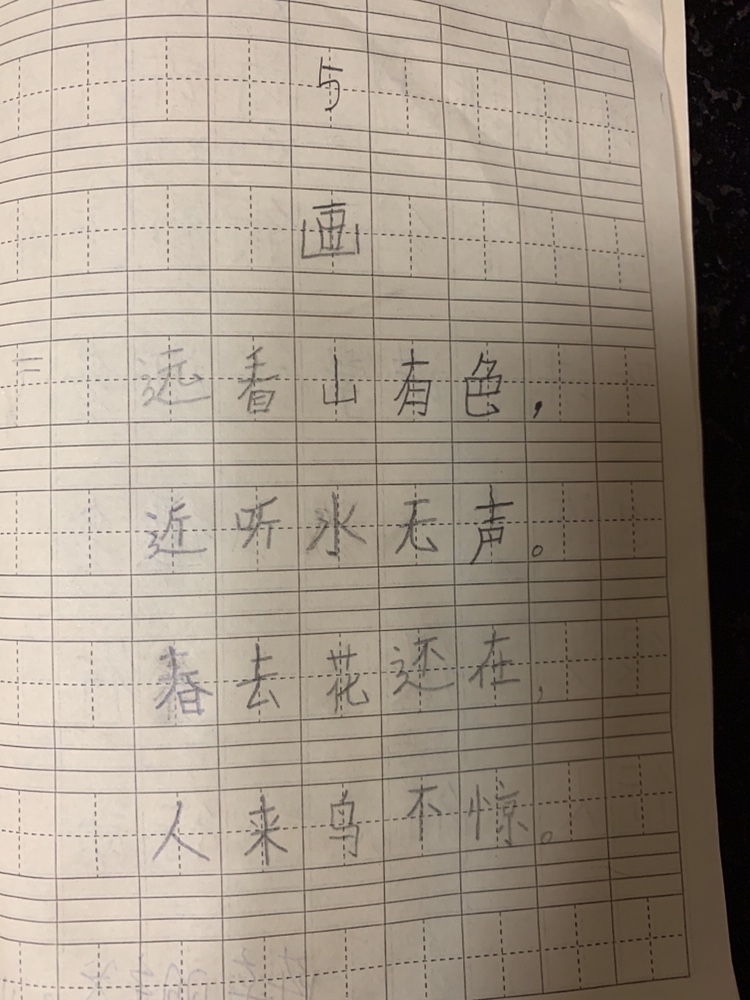 5
画
= 远看山有色，
近听水无声。
春去花还在，
人来鸟不惊。